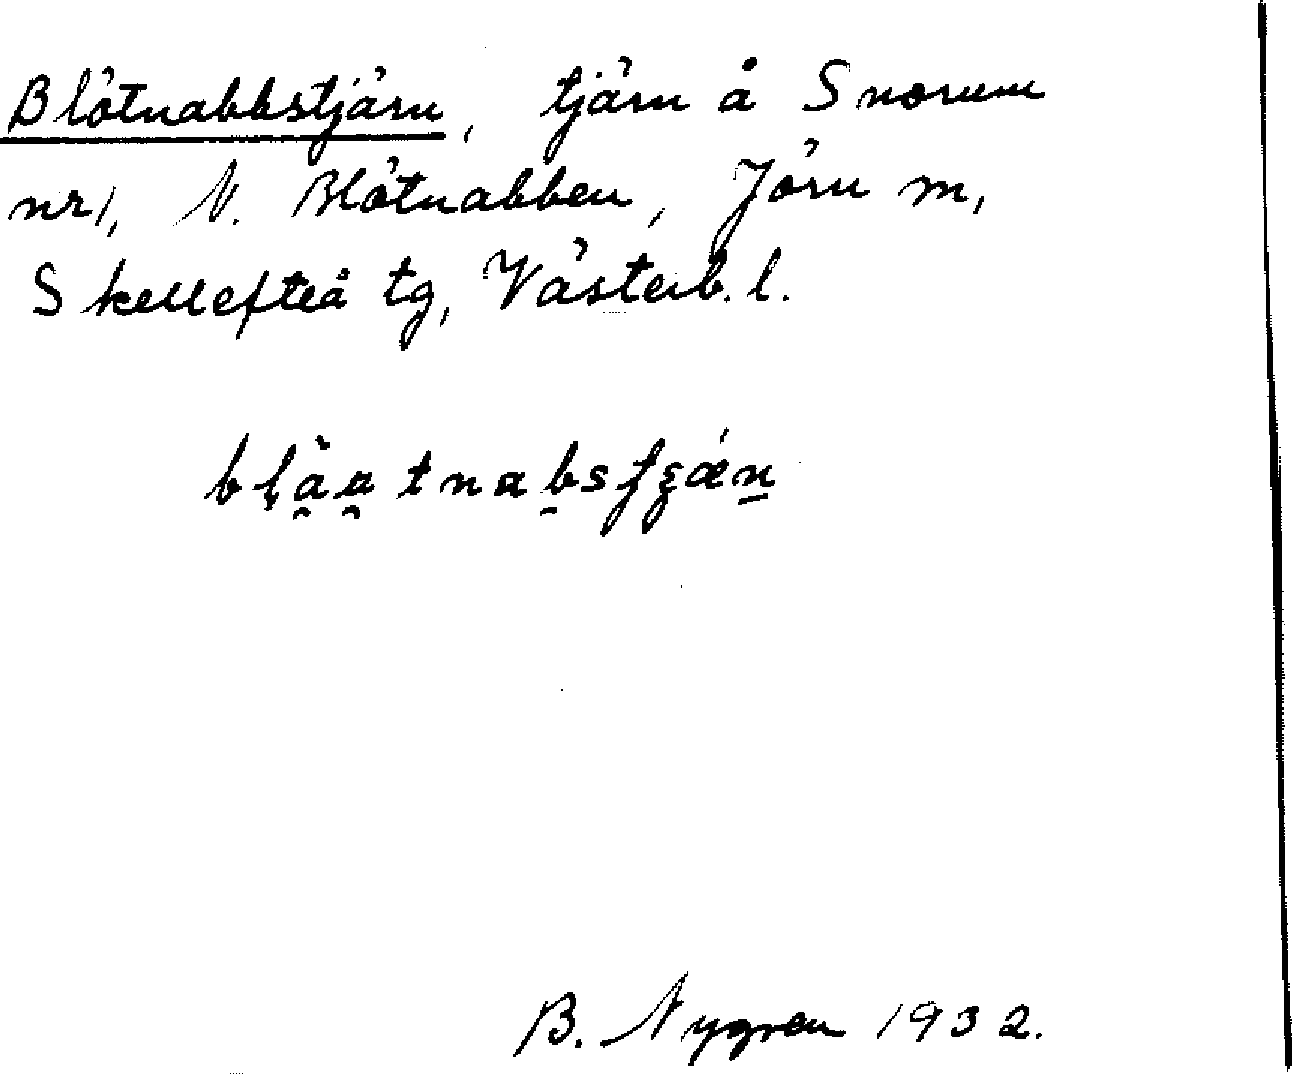 Blötnabbstjärn, tjärn å Snorum
nr 1, N. Blötnabben, Jörn m,
Skellefteå tg, Västerb. l.
B. Nygren 1932.